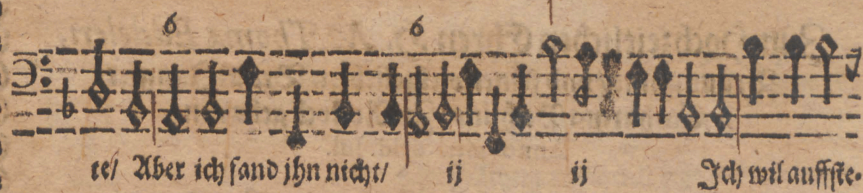 6 6
te/ Aber ich fand jhn nicht/ ij ij Ich wil auffste-